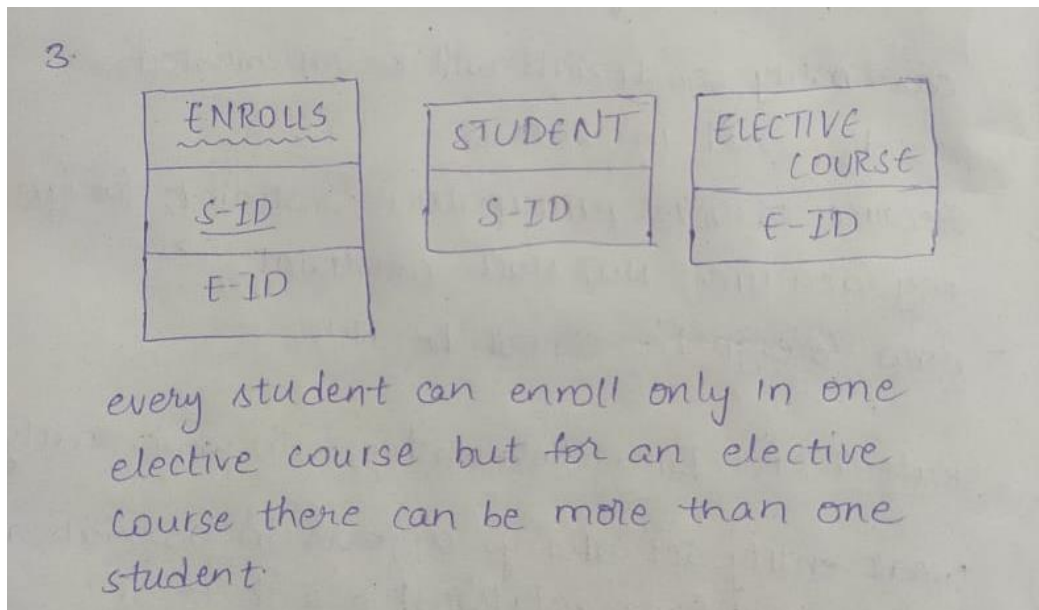 3.
ENROLLS
S-ID
E-ID
STUDENT
S-ID
ELECTIVE
COURSE
E-ID
every student can enroll only in one
elective course but for an elective
course there can be more than one
student.